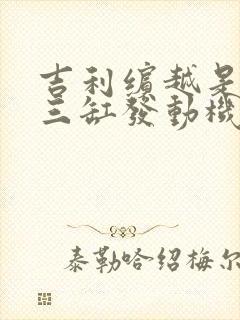 吉利繽越是
三缸發動機
泰勒哈绍梅尔